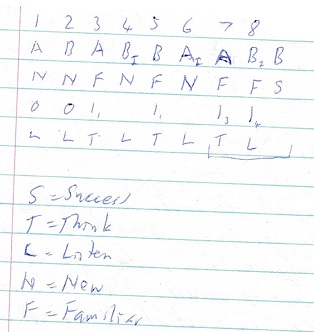 1 2 3 4 5 6 7 8
A B A B_I B A_I A B_2 B
N N F N F N F F S
0 0 1, 1, 1_3 1_4
L L T L T L T L
S = Success
T = Think
L = Listen
N = New
F = Familiar